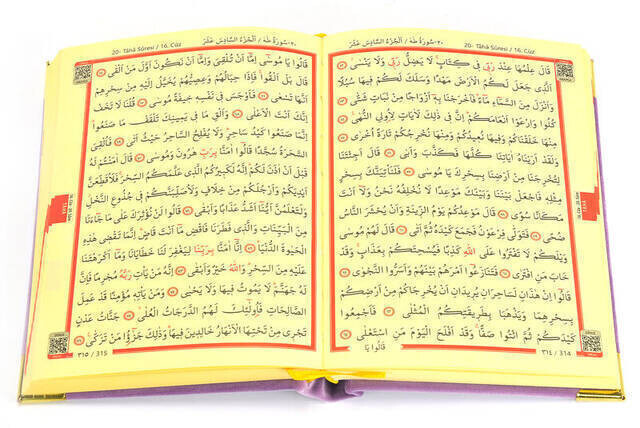 ٢٠-سُورَةُ طٰهٰ / اَلْجُزْءُ السَّادِسَ عَشَرَ 20- Tâhâ Sûresi / 16. Cüz
قَالَ عِلْمُهَا عِنْدَ رَبّ۪ى ف۪ى كِتَابٍ لَا يَضِلُّ رَبّ۪ى وَلَا يَنْسٰى
اَلَّذ۪ى جَعَلَ لَكُمُ الْاَرْضَ مَهْدًا وَسَلَكَ لَكُمْ ف۪يهَا سُبُلًا
وَاَنْزَلَ مِنَ السَّمَٓاءِ مَٓاءً فَاَخْرَجْنَا بِه۪ٓ اَزْوَاجًا مِنْ نَبَاتٍ شَتّٰى
كُلُوا وَارْعَوْا اَنْعَامَكُمْ اِنَّ ف۪ى ذٰلِكَ لَاٰيَاتٍ لِاُو۬لِى النُّهٰى
مِنْهَا خَلَقْنَاكُمْ وَف۪يهَا نُع۪يدُكُمْ وَمِنْهَا نُخْرِجُكُمْ تَارَةً اُخْرٰى
وَلَقَدْ اَرَيْنَاهُ اٰيَاتِنَا كُلَّهَا فَكَذَّبَ وَاَبٰى قَالَ اَجِئْتَنَا
لِتُخْرِجَنَا مِنْ اَرْضِنَا بِسِحْرِكَ يَا مُوسٰى فَلَنَأْتِيَنَّكَ بِسِحْرٍ
مِثْلِه۪ فَاجْعَلْ بَيْنَنَا وَبَيْنَكَ مَوْعِدًا لَا نُخْلِفُهُ نَحْنُ وَلَٓا اَنْتَ
مَكَانًا سُوًى قَالَ مَوْعِدُكُمْ يَوْمُ الزّ۪ينَةِ وَاَنْ يُحْشَرَ النَّاسُ
ضُحًى فَتَوَلّٰى فِرْعَوْنُ فَجَمَعَ كَيْدَهُ ثُمَّ اَتٰى قَالَ لَهُمْ مُوسٰى
وَيْلَكُمْ لَا تَفْتَرُوا عَلَى اللّٰهِ كَذِبًا فَيُسْحِتَكُمْ بِعَذَابٍ وَقَدْ
خَابَ مَنِ افْتَرٰى فَتَنَازَعُٓوا اَمْرَهُمْ بَيْنَهُمْ وَاَسَرُّوا النَّجْوٰى
قَالُٓوا اِنْ هٰذَانِ لَسَاحِرَانِ يُر۪يدَانِ اَنْ يُخْرِجَاكُمْ مِنْ اَرْضِكُمْ
بِسِحْرِهِمَا وَيَذْهَبَا بِطَر۪يقَتِكُمُ الْمُثْلٰى فَاَجْمِعُوا
كَيْدَكُمْ ثُمَّ ائْتُوا صَفًّا وَقَدْ اَفْلَحَ الْيَوْمَ مَنِ اسْتَعْلٰى
قَالُوا يَا
٣١٤ / 314
٢٠-سُورَةُ طٰهٰ / اَلْجُزْءُ السَّادِسَ عَشَرَ 20- Tâhâ Sûresi / 16. Cüz
قَالُوا يَا مُوسٰٓى اِمَّٓا اَنْ تُلْقِىَ وَاِمَّٓا اَنْ نَكُونَ اَوَّلَ مَنْ اَلْقٰى
قَالَ بَلْ اَلْقُوا فَاِذَا حِبَالُهُمْ وَعِصِيُّهُمْ يُخَيَّلُ اِلَيْهِ مِنْ سِحْرِهِمْ
اَنَّهَا تَسْعٰى فَاَوْجَسَ ف۪ى نَفْسِه۪ خ۪يفَةً مُوسٰى قُلْنَا لَا تَخَفْ
اِنَّكَ اَنْتَ الْاَعْلٰى وَاَلْقِ مَا ف۪ى يَم۪ينِكَ تَلْقَفْ مَا صَنَعُوا
اِنَّمَا صَنَعُوا كَيْدُ سَاحِرٍ وَلَا يُفْلِحُ السَّاحِرُ حَيْثُ اَتٰى فَاُلْقِىَ
السَّحَرَةُ سُجَّدًا قَالُٓوا اٰمَنَّا بِرَبِّ هٰرُونَ وَمُوسٰى قَالَ اٰمَنْتُمْ لَهُ
قَبْلَ اَنْ اٰذَنَ لَكُمْ اِنَّهُ لَكَب۪يرُكُمُ الَّذ۪ى عَلَّمَكُمُ السِّحْرَ فَلَاُقَطِّعَنَّ
اَيْدِيَكُمْ وَاَرْجُلَكُمْ مِنْ خِلَافٍ وَلَاُصَلِّبَنَّكُمْ ف۪ى جُذُوعِ النَّخْلِ
وَلَتَعْلَمُنَّ اَيُّنَٓا اَشَدُّ عَذَابًا وَاَبْقٰى قَالُوا لَنْ نُؤْثِرَكَ عَلٰى مَا جَٓاءَنَا
مِنَ الْبَيِّنَاتِ وَالَّذ۪ى فَطَرَنَا فَاقْضِ مَٓا اَنْتَ قَاضٍ اِنَّمَا تَقْض۪ى هٰذِهِ
الْحَيٰوةَ الدُّنْيَا اِنَّٓا اٰمَنَّا بِرَبِّنَا لِيَغْفِرَ لَنَا خَطَايَانَا وَمَٓا اَكْرَهْتَنَا
عَلَيْهِ مِنَ السِّحْرِ وَاللّٰهُ خَيْرٌ وَاَبْقٰى اِنَّهُ مَنْ يَأْتِ رَبَّهُ مُجْرِمًا فَاِنَّ
لَهُ جَهَنَّمَ لَا يَمُوتُ ف۪يهَا وَلَا يَحْيٰى وَمَنْ يَأْتِه۪ مُؤْمِنًا قَدْ عَمِلَ
الصَّالِحَاتِ فَاُو۬لٰٓئِكَ لَهُمُ الدَّرَجَاتُ الْعُلٰى جَنَّاتُ عَدْنٍ
تَجْر۪ى مِنْ تَحْتِهَا الْاَنْهَارُ خَالِد۪ينَ ف۪يهَا وَذٰلِكَ جَزٰٓؤُا مَنْ تَزَكّٰى
٣١٥ / 315